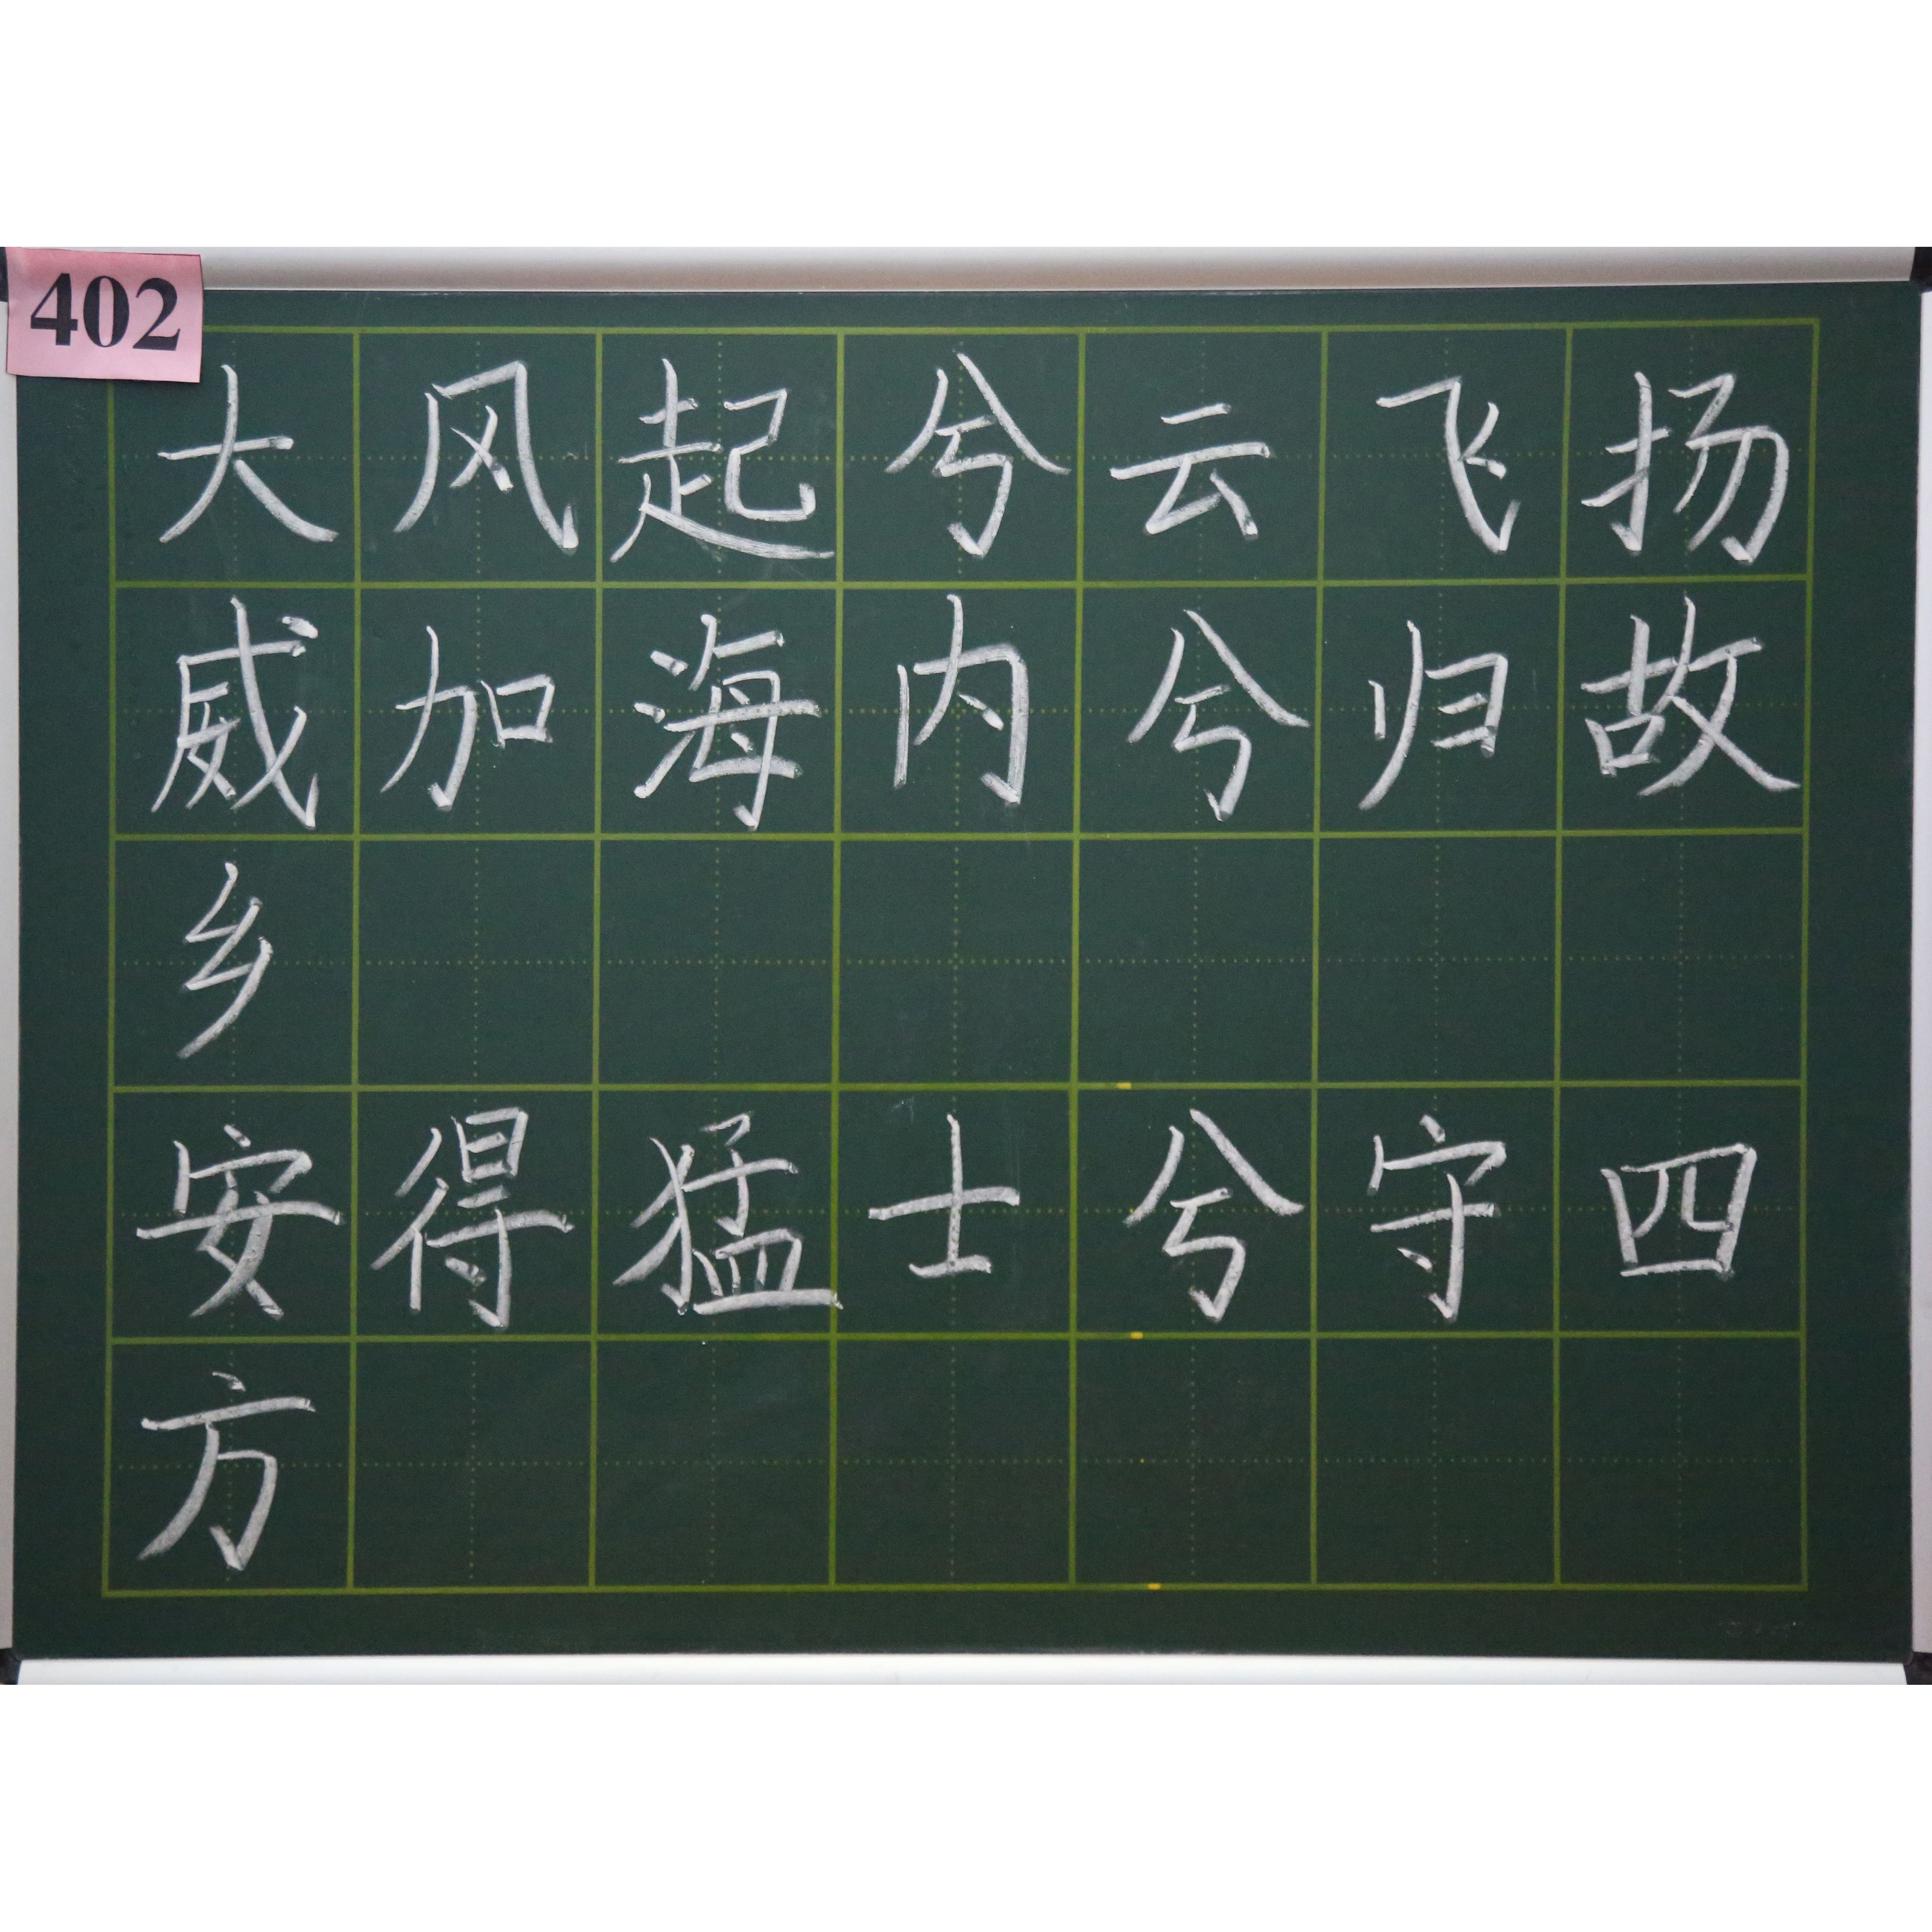 402
大风起兮云飞扬
威加海内兮归故
乡
安得猛士兮守四
方